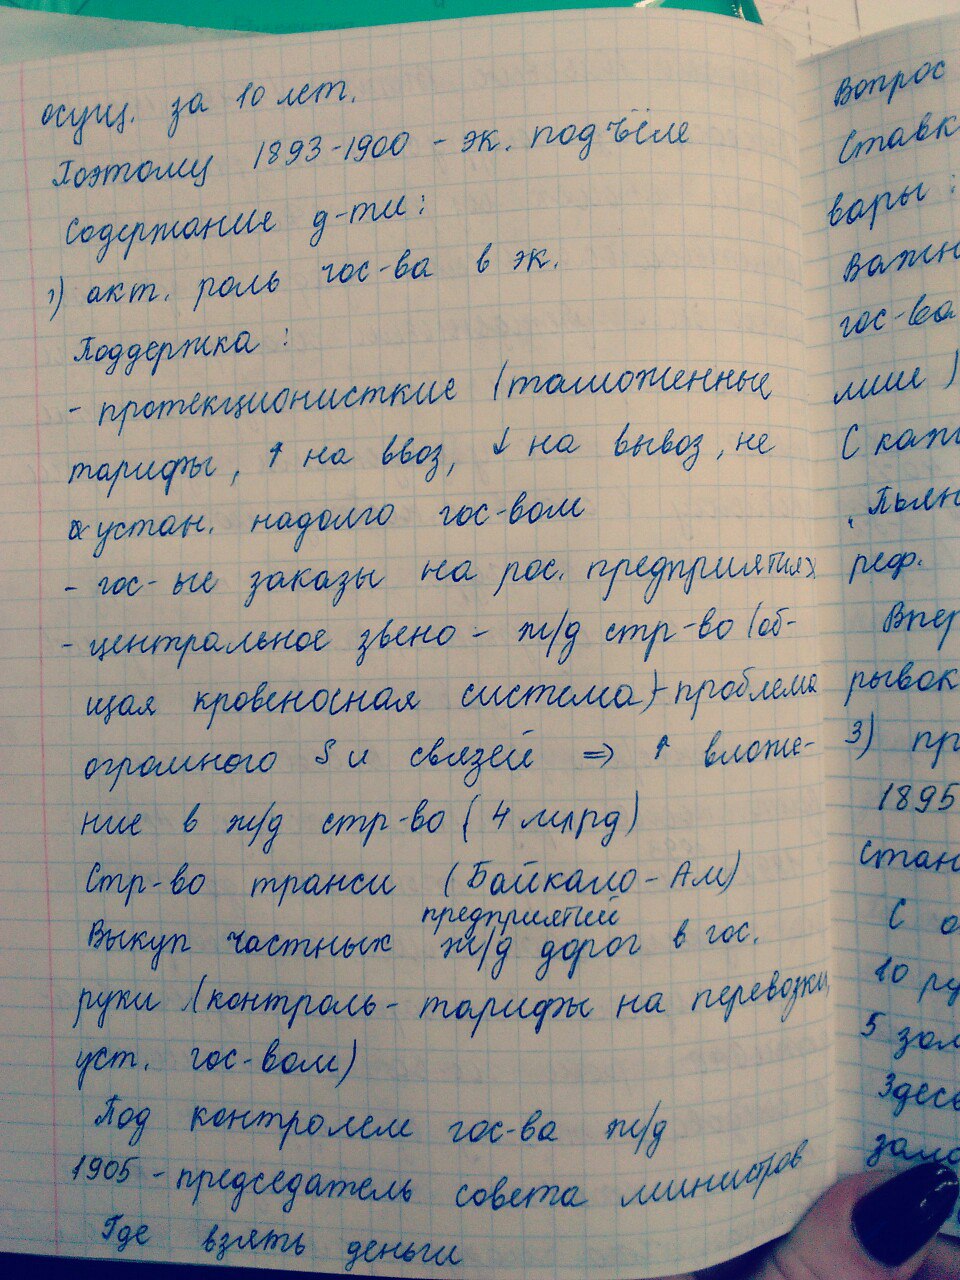 осущ. за 10 лет.
Поэтому 1893-1900 - эк. подъём
Содержание д-ти:
1) акт. роль гос-ва в эк.
Поддержка:
- протекционисткие (таможенные
тарифы, ↑ на ввоз, ↓ на вывоз, не
устан. надолго гос-вом
- гос-ые заказы на рос. предприятиях
- центральное звено - ж/д стр-во (об-
щая кровеносная система) - проблема
огромного S и связей ⇒ ↑ вложе-
ние в ж/д стр-во (4 млрд)
Стр-во транси (Байкало-Ам)
предприятий
Выкуп частных ж/д дорог в гос.
руки (контроль - тарифы на перевозки,
уст. гос-вом)
Под контролем гос-ва ж/д
1905 - председатель совета министров
Где взять деньги
Вопрос
Ставк
вары:
Важн
гос-ва
мии)
С каж
"Пьян
реф.
Впер
рывок
3) пр
1895
стан
С о
10 ру
5 зол
Здесь
зало